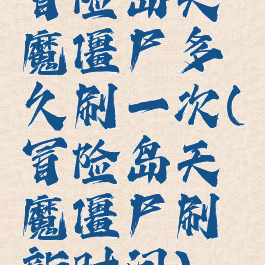 冒险岛天
魔僵尸多
久刷一次(
冒险岛天
魔僵尸刷
新时间)